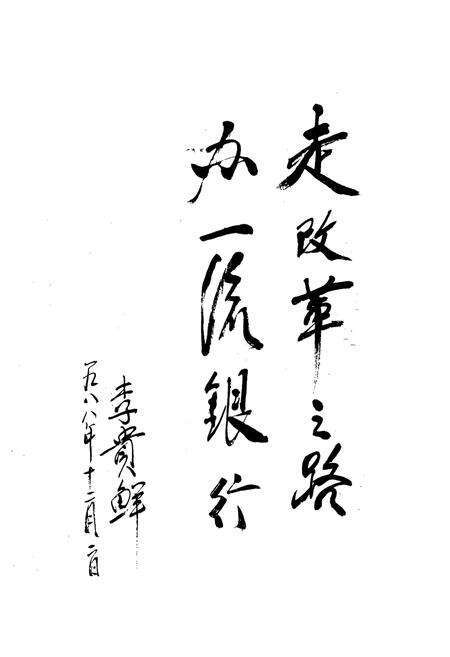 走改革之路
办一流銀行
李貴鮮
一九八八年十二月二日